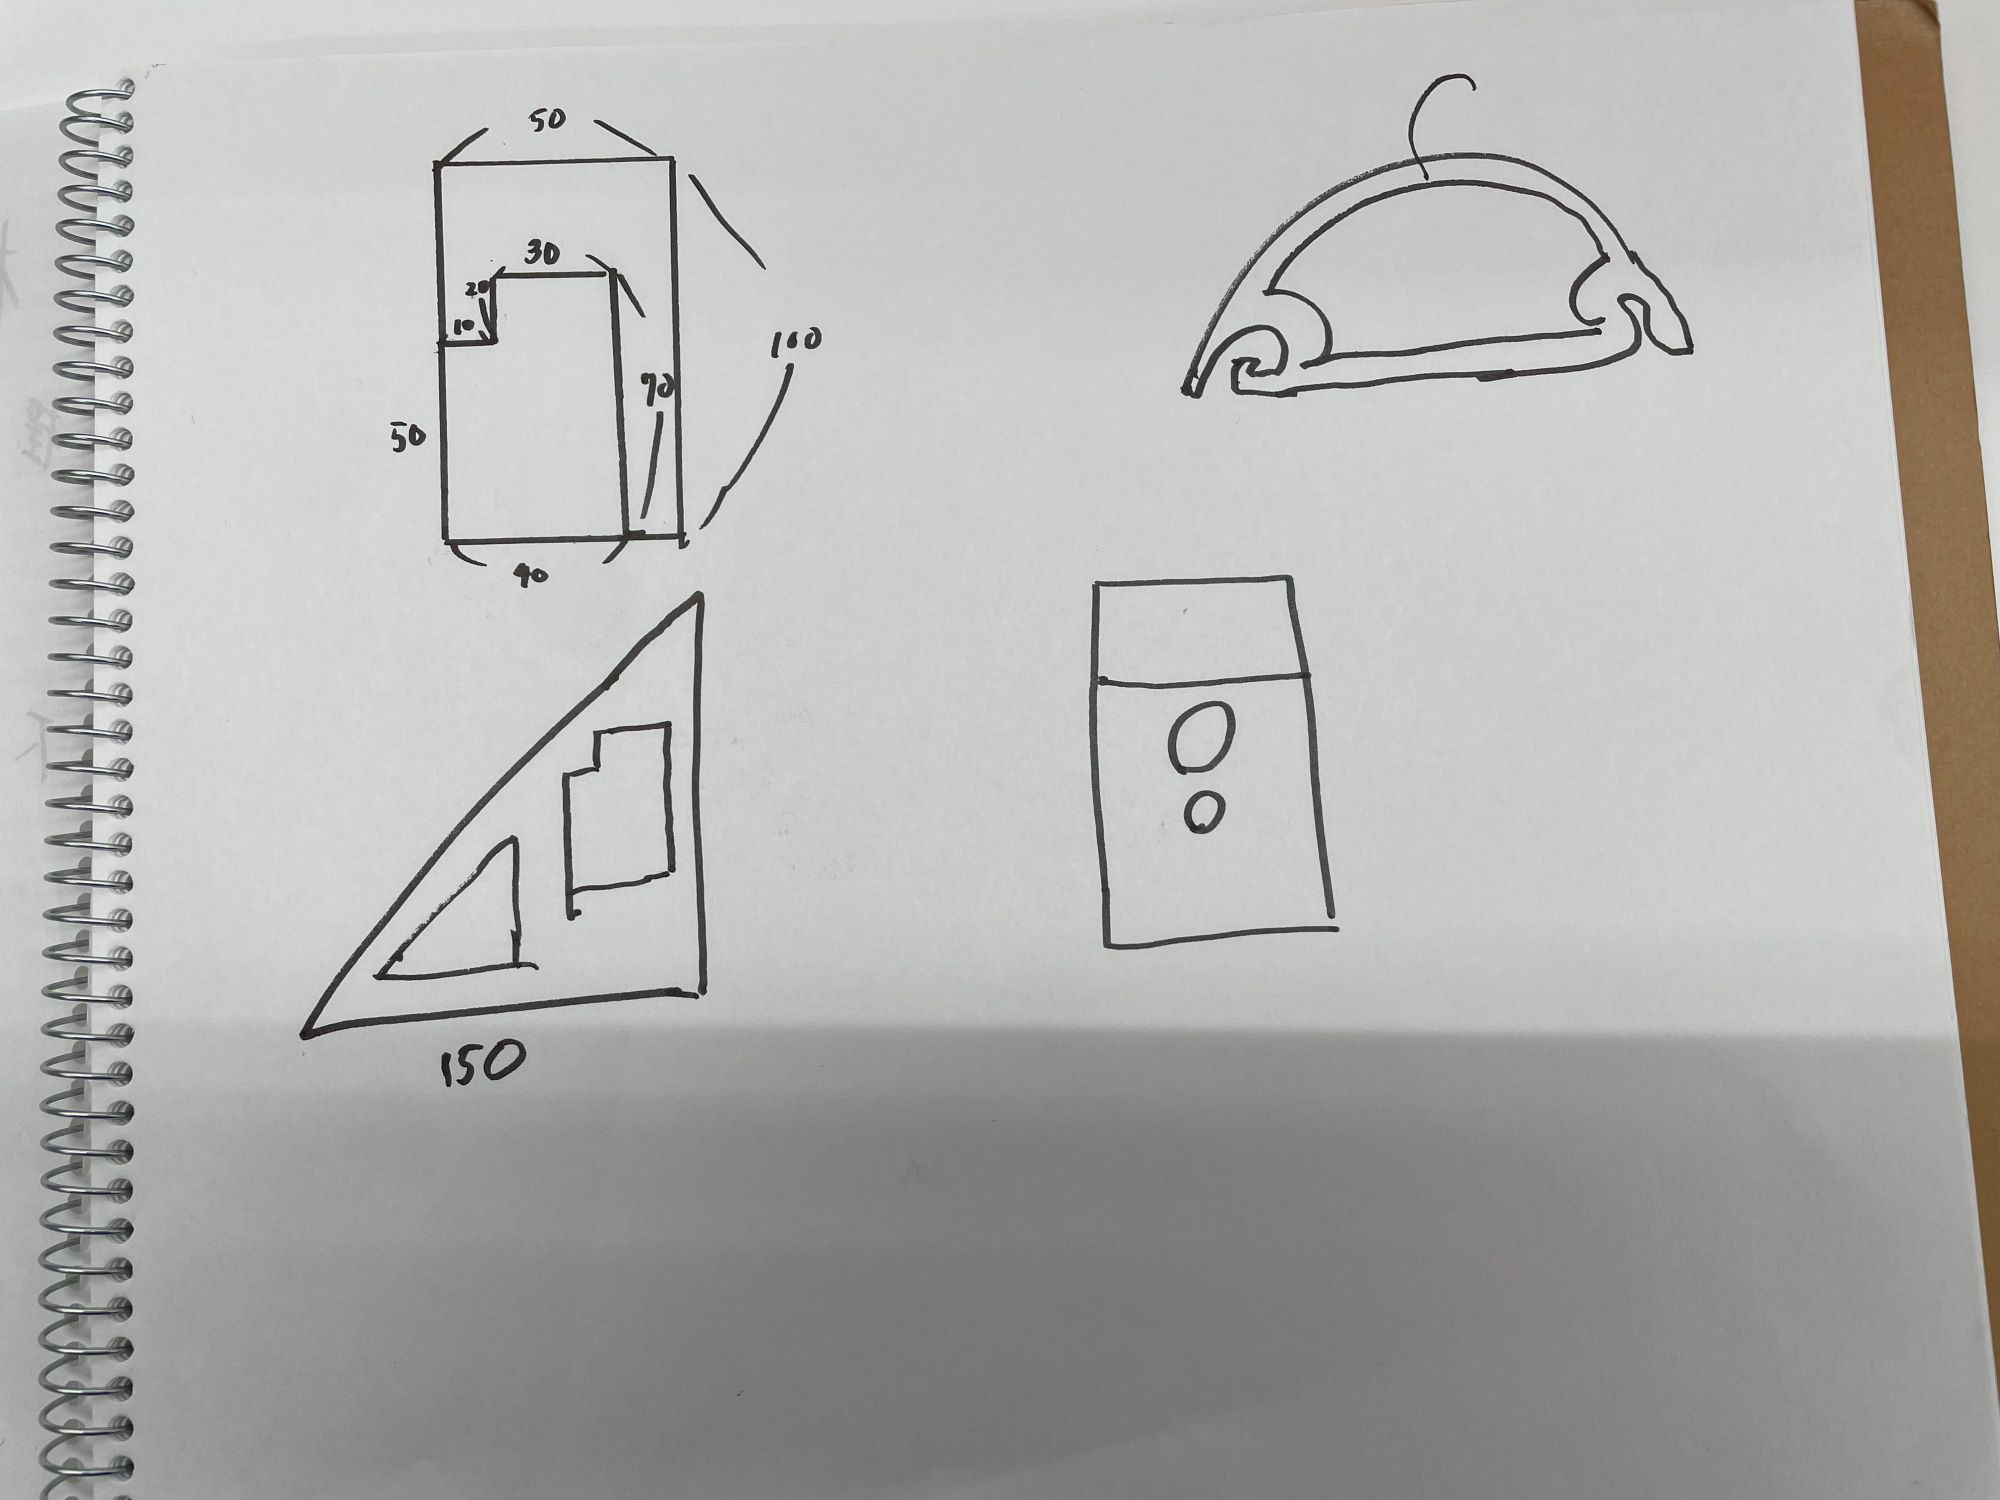 50
30
20
10
100
70
50
40
150